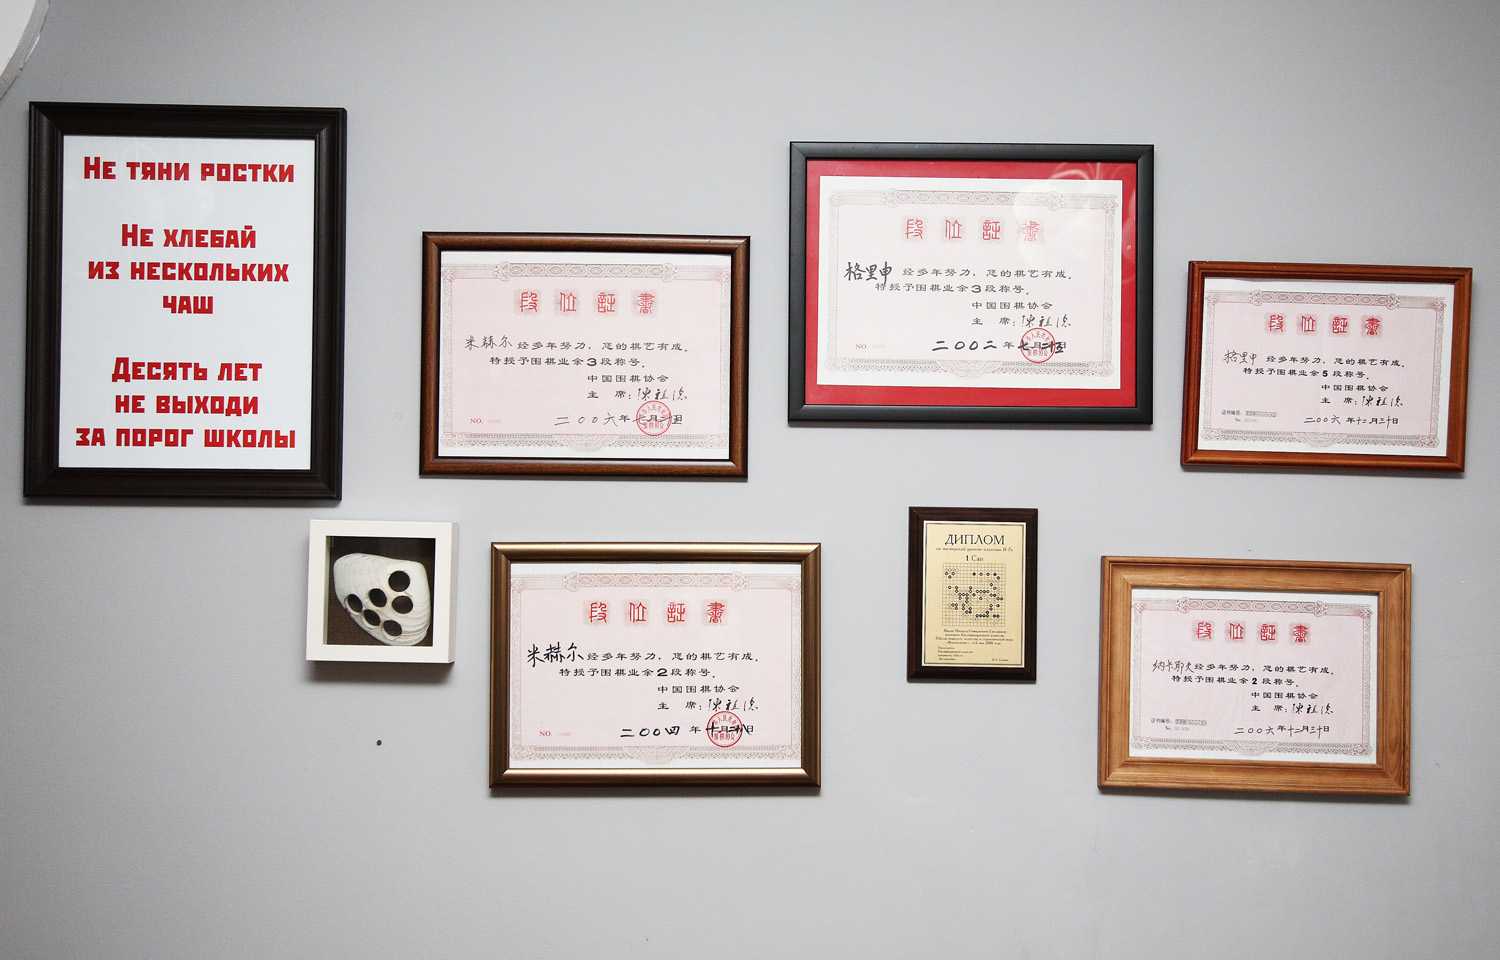 Не тяни ростки
Не хлебай
из нескольких
чаш
Десять лет
не выходи
за порог школы
段位証書
米赫尔 经多年努力，您的棋艺有成。
特授予围棋业余3段称号。
中国围棋协会
主 席：陳祖德
NO.
二00六年七月
段位証書
格里申 经多年努力，您的棋艺有成。
特授予围棋业余3段称号。
中国围棋协会
主 席：陳祖德
NO.
二00二年七月廿五日
段位証書
格里申 经多年努力，您的棋艺有成。
特授予围棋业余5段称号。
中国围棋协会
主 席：陳祖德
证书编号：
No.
二00六年十二月三十日
段位証書
米赫尔 经多年努力，您的棋艺有成。
特授予围棋业余2段称号。
中国围棋协会
主 席：陳祖德
NO.
二00四年十月廿八日
ДИПЛОМ
1 Сан
段位証書
纳卡耶夫 经多年努力，您的棋艺有成。
特授予围棋业余2段称号。
中国围棋协会
主 席：陳祖德
证书编号：
No.
二00六年十二月三十日